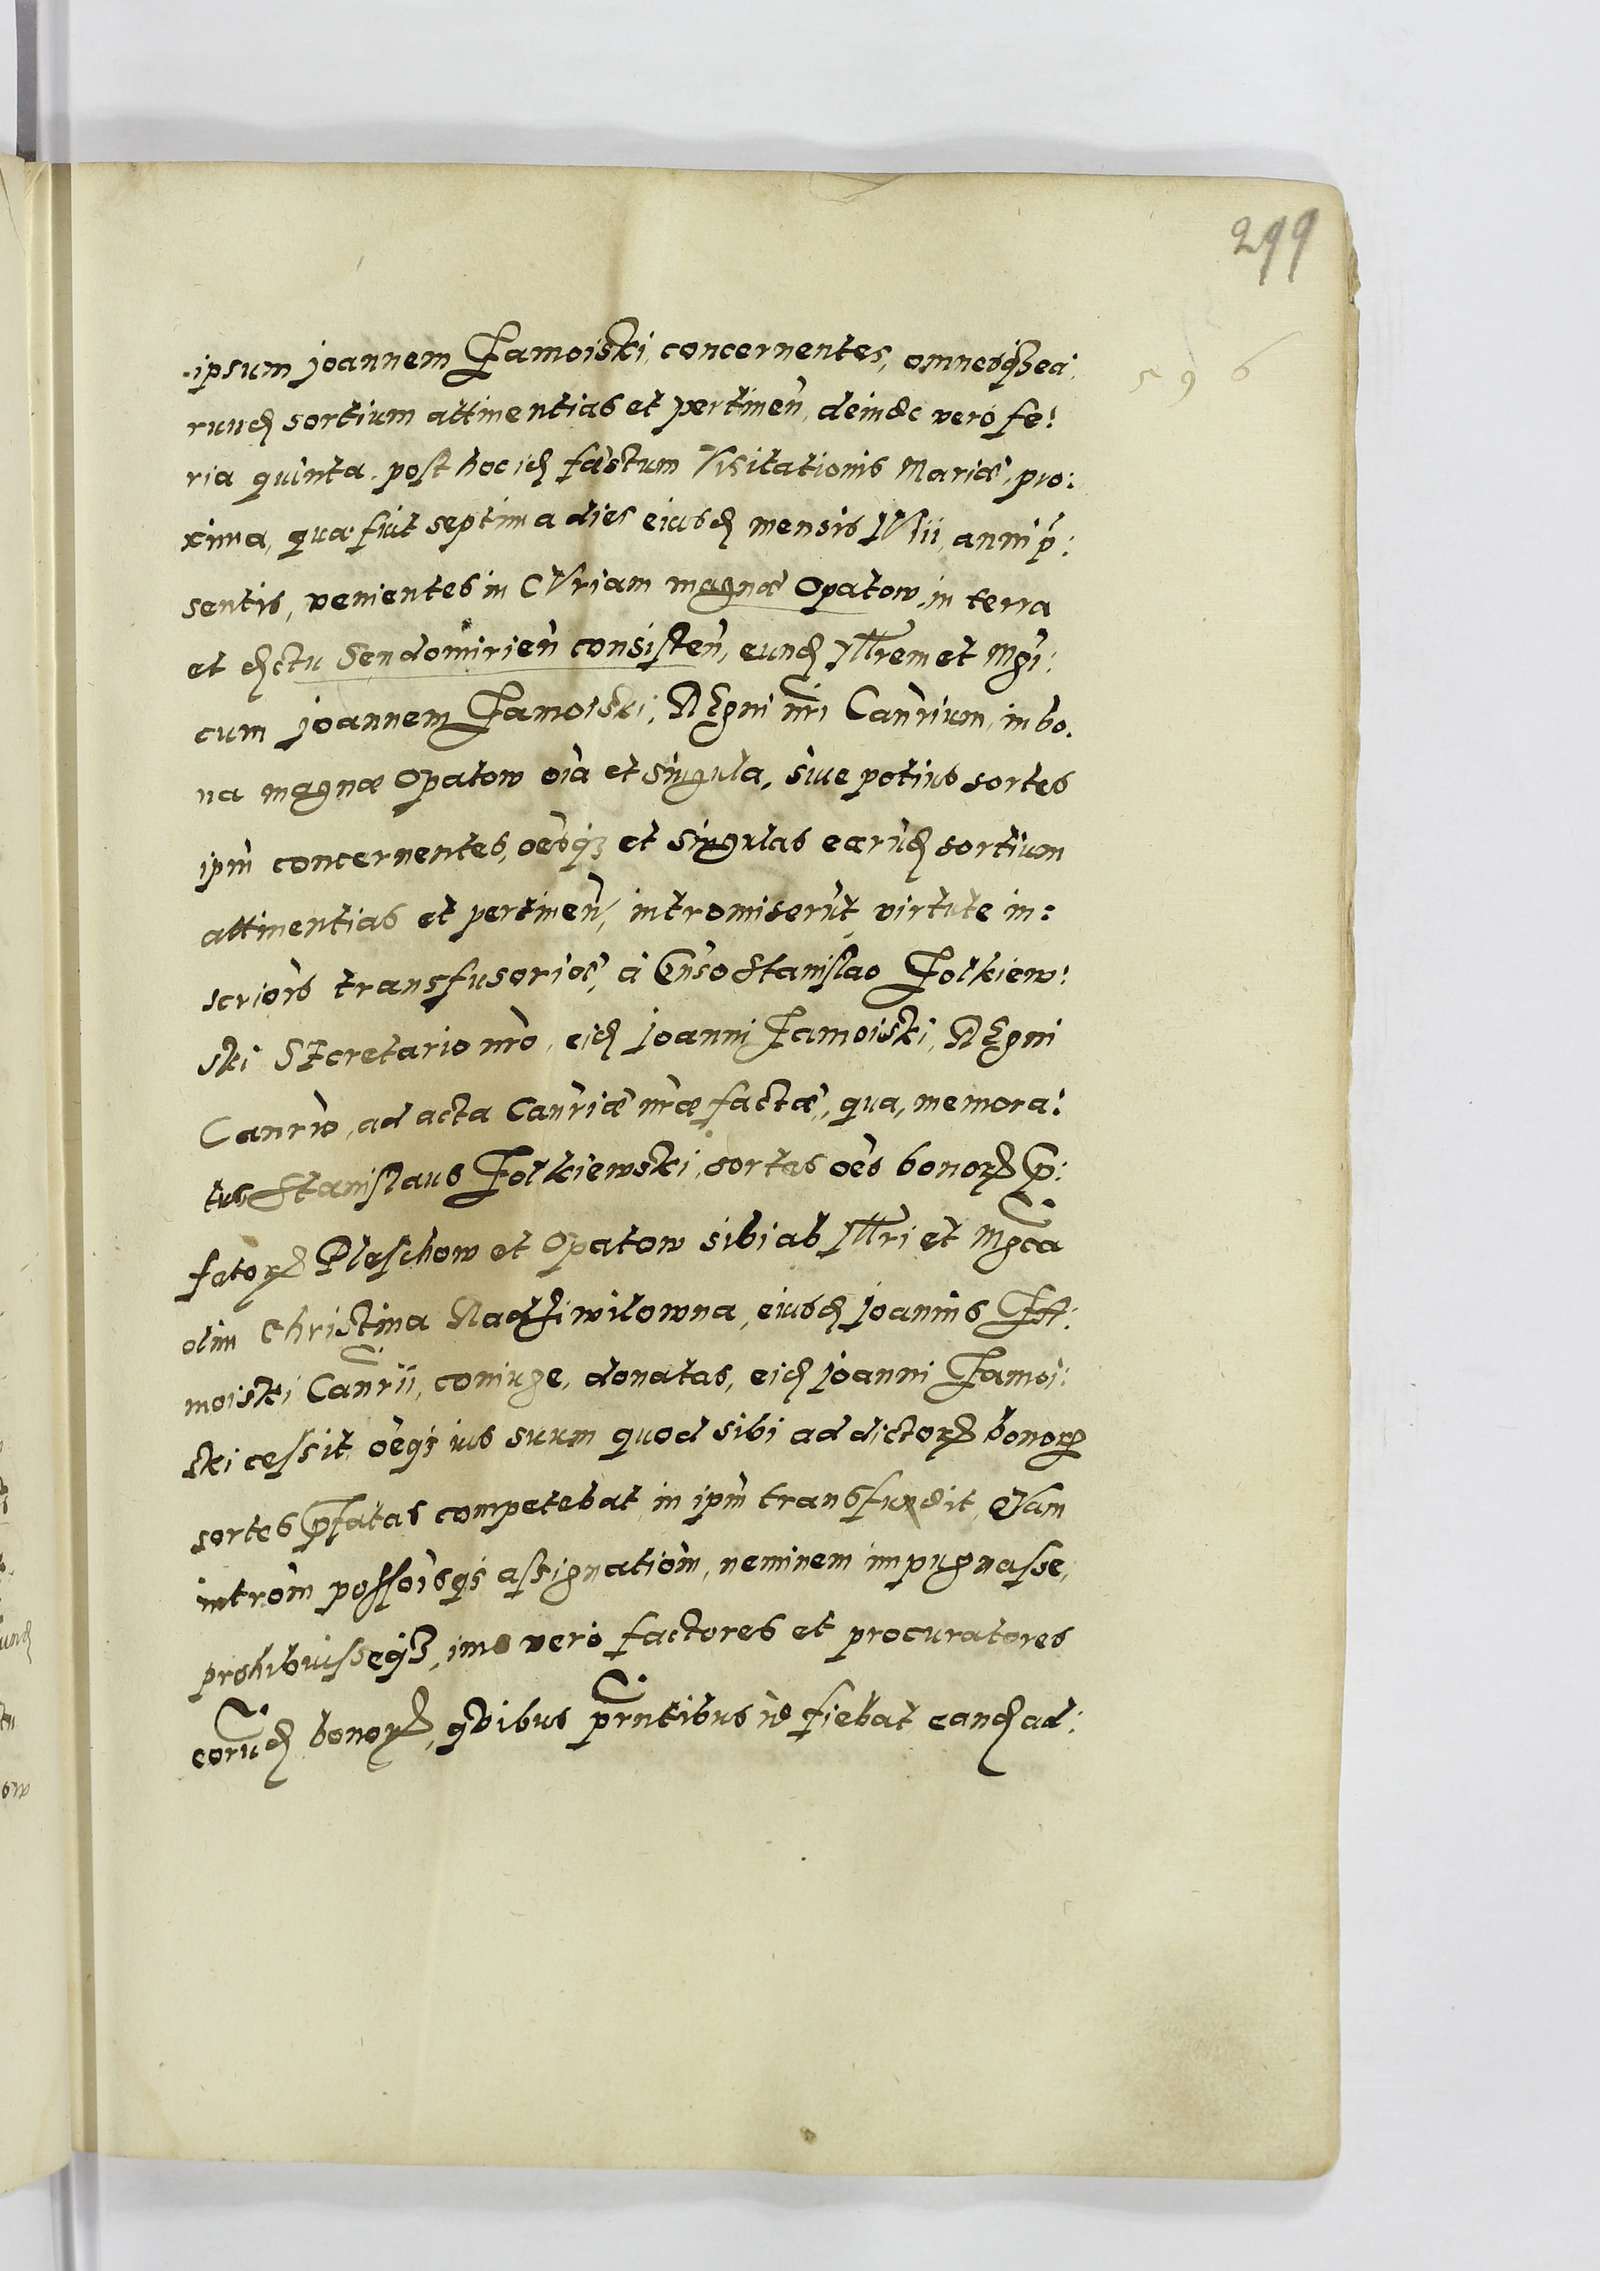 299
596
ipsum joannem Zamoiski, concernentes, omnesq3 ea:
rund sortium attinentias et pertinen̄, deinde vero fe:
ria quinta post hoc id fæstum Visitationis Mariæ, pro:
xima, quæ fuit septima dies eiusd mensis IVlii, anni p̄:
sentis, venientes in CVriam magnæ Opatow, in terra
et dīctu Sendomirien̄ consisten̄, eund Illrem et Mgi:
cum joannem Zamoiski, REgni nr̄i Can̄rium, in bo:
na magnæ Opatow oīa et singula, siue potius sortes
ipm̄ concernentes, oēsq3 et singulas earūd sortium
attinentias et pertinen̄, intromiserūt, virtute in:
scriōis transfusoriæ, à Gn̄so Stanislao Zolkiew:
ski SEcretario nr̄o, eid joanni Zamoiski, REgni
Can̄rio, ad acta Can̄riæ nr̄æ factæ, qua, memora:
tus Stanislaus Zolkiewski, sortes oēs bonorꝝ p̄:
fatorꝝ Pleschow et Opatow sibi ab Illri et Mgca
olim Christina Radziwilowna, eiusd joannis Za:
moiski Can̄rii, coniuge, donatas, eid joanni Zamoi:
ski cessit, oēq3 ius suum quod sibi ad dictorꝝ bonorꝝ
sortes p̄fatas competebat, in ipm̄ transfundit, QVam
intrōm possōisq3 assignatiōm, neminem impugnasse,
prohibuisseq3, imo vero factores et procuratores
eorūd bonorꝝ, qVibus p̄ntibus id fiebat eand ad: